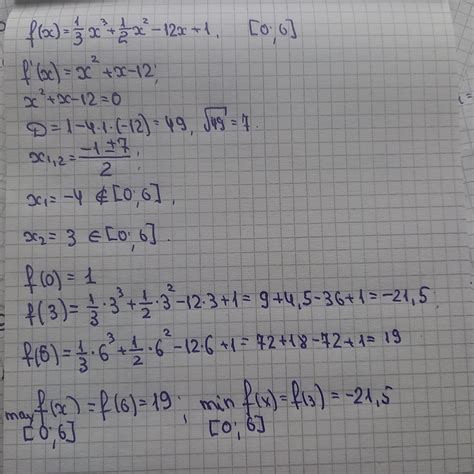 f(x)=1/3 x³+1/2 x²-12x+1, [0;6]
f'(x)=x²+x-12;
x²+x-12=0
D=1-4·1·(-12)=49, √49=7.
x₁,₂=(-1±7)/2;
x₁=-4 ∉[0;6],
x₂=3 ∈[0;6].
f(0)=1
f(3)=1/3·3³+1/2·3²-12·3+1=9+4,5-36+1=-21,5
f(6)=1/3·6³+1/2·6²-12·6+1=72+18-72+1=19
max f(x)=f(6)=19; min f(x)=f(3)=-21,5
[0;6] [0;6]